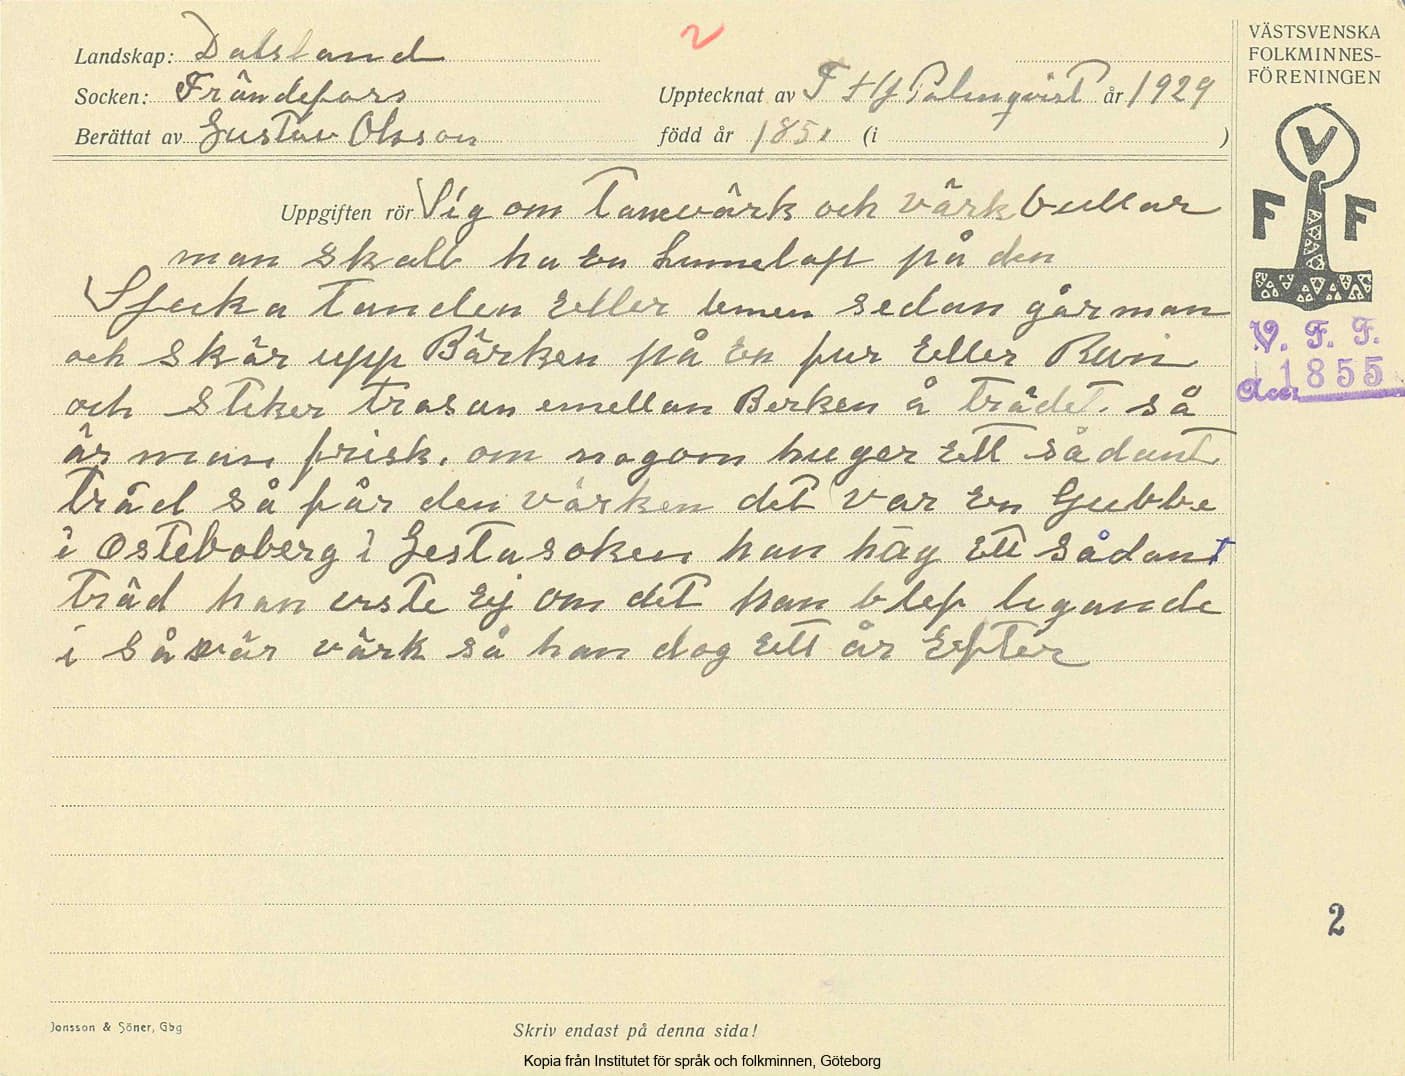 2
Landskap: Dalsland
Socken: Frändefors
Upptecknat av F Hj Palmqvist år 1929
Berättat av Gustav Olsson
född år 1851 (i )
VÄSTSVENSKA
FOLKMINNES-
FÖRENINGEN
V
F F
V. F. F.
Acc. 1855
Uppgiften rör Sig om Tanvärk och värkbullar
man skall ha en Linnelapp på den
Sjuka Tanden Eller lemen sedan går man
och skär upp Bärken på En fur Eller Run
och stiker trasan emellan Berken å trädet. så
är man frisk. om nogon huger Ett sådant
Träd så får den värken det var En Gubbe
i Osteboberg i Gestasoken han häg Ett sådant
träd han viste Ej om det han blef ligande
i så svär värk så han dog Ett år Efter
2
Jonsson & Söner, Gbg
Skriv endast på denna sida!
Kopia från Institutet för språk och folkminnen, Göteborg